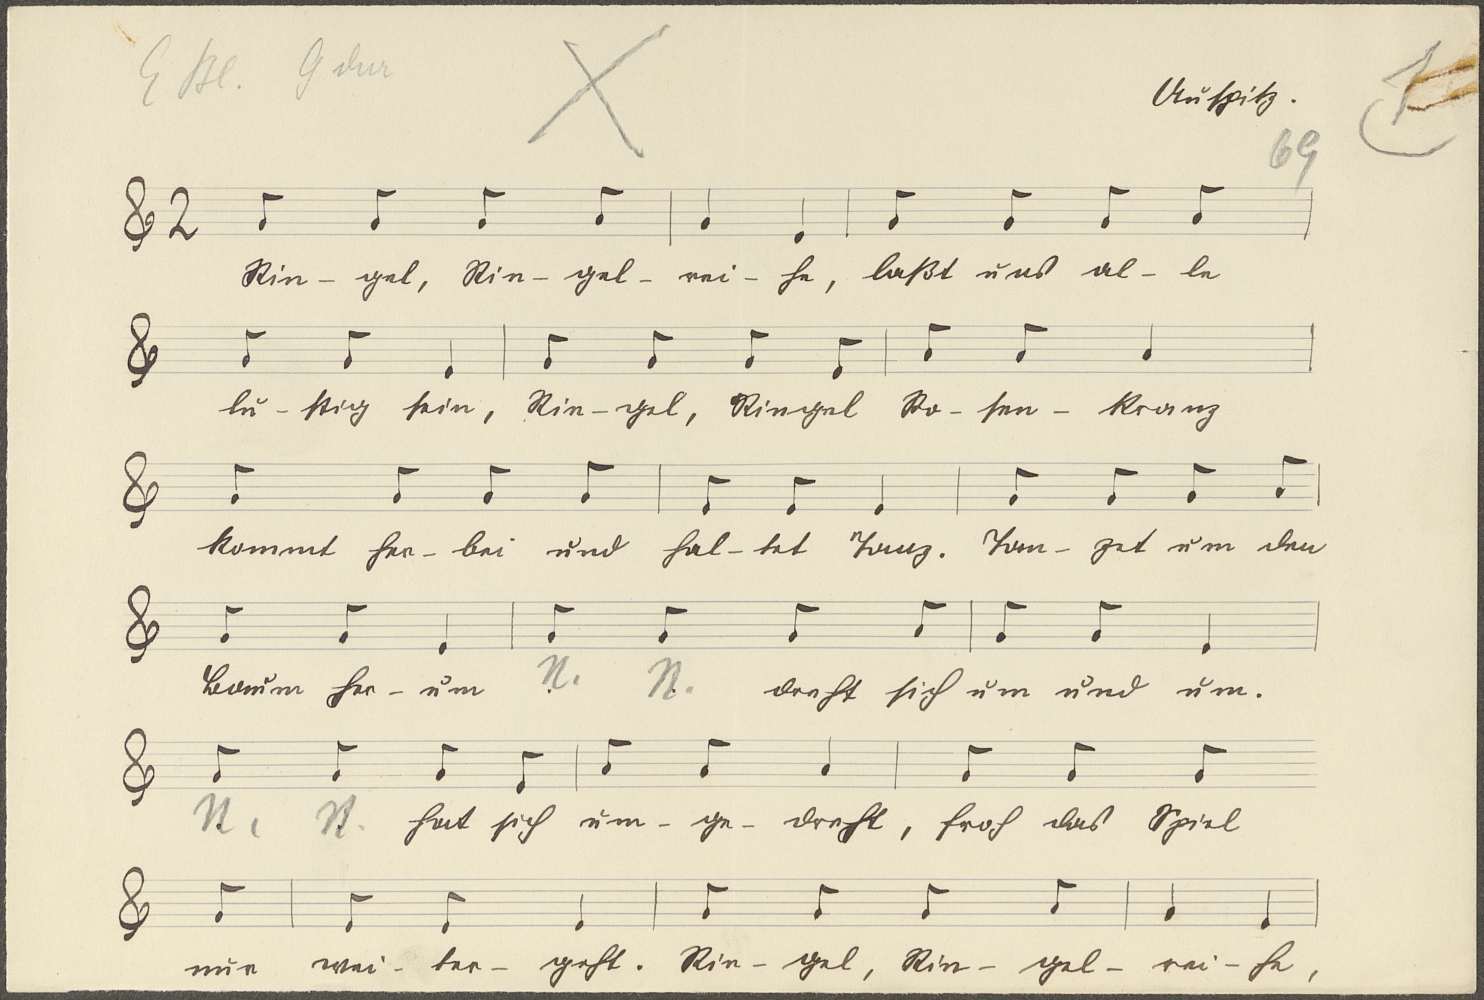 G dur
Auspitz.
69
2
Rin- gel, Rin- gel- rei- he, laßt uns al- le
lu- stig sein, Rin- gel, Ringel Ro- sen- kranz
kommt her- bei und hal- tet Tanz. Tan- zet um den
Baum her- um N. N. dreht sich um und um.
N. N. hat sich um- ge- dreht, froh das Spiel
nur wei- ter- geht. Rin- gel, Rin- gel- rei- he,